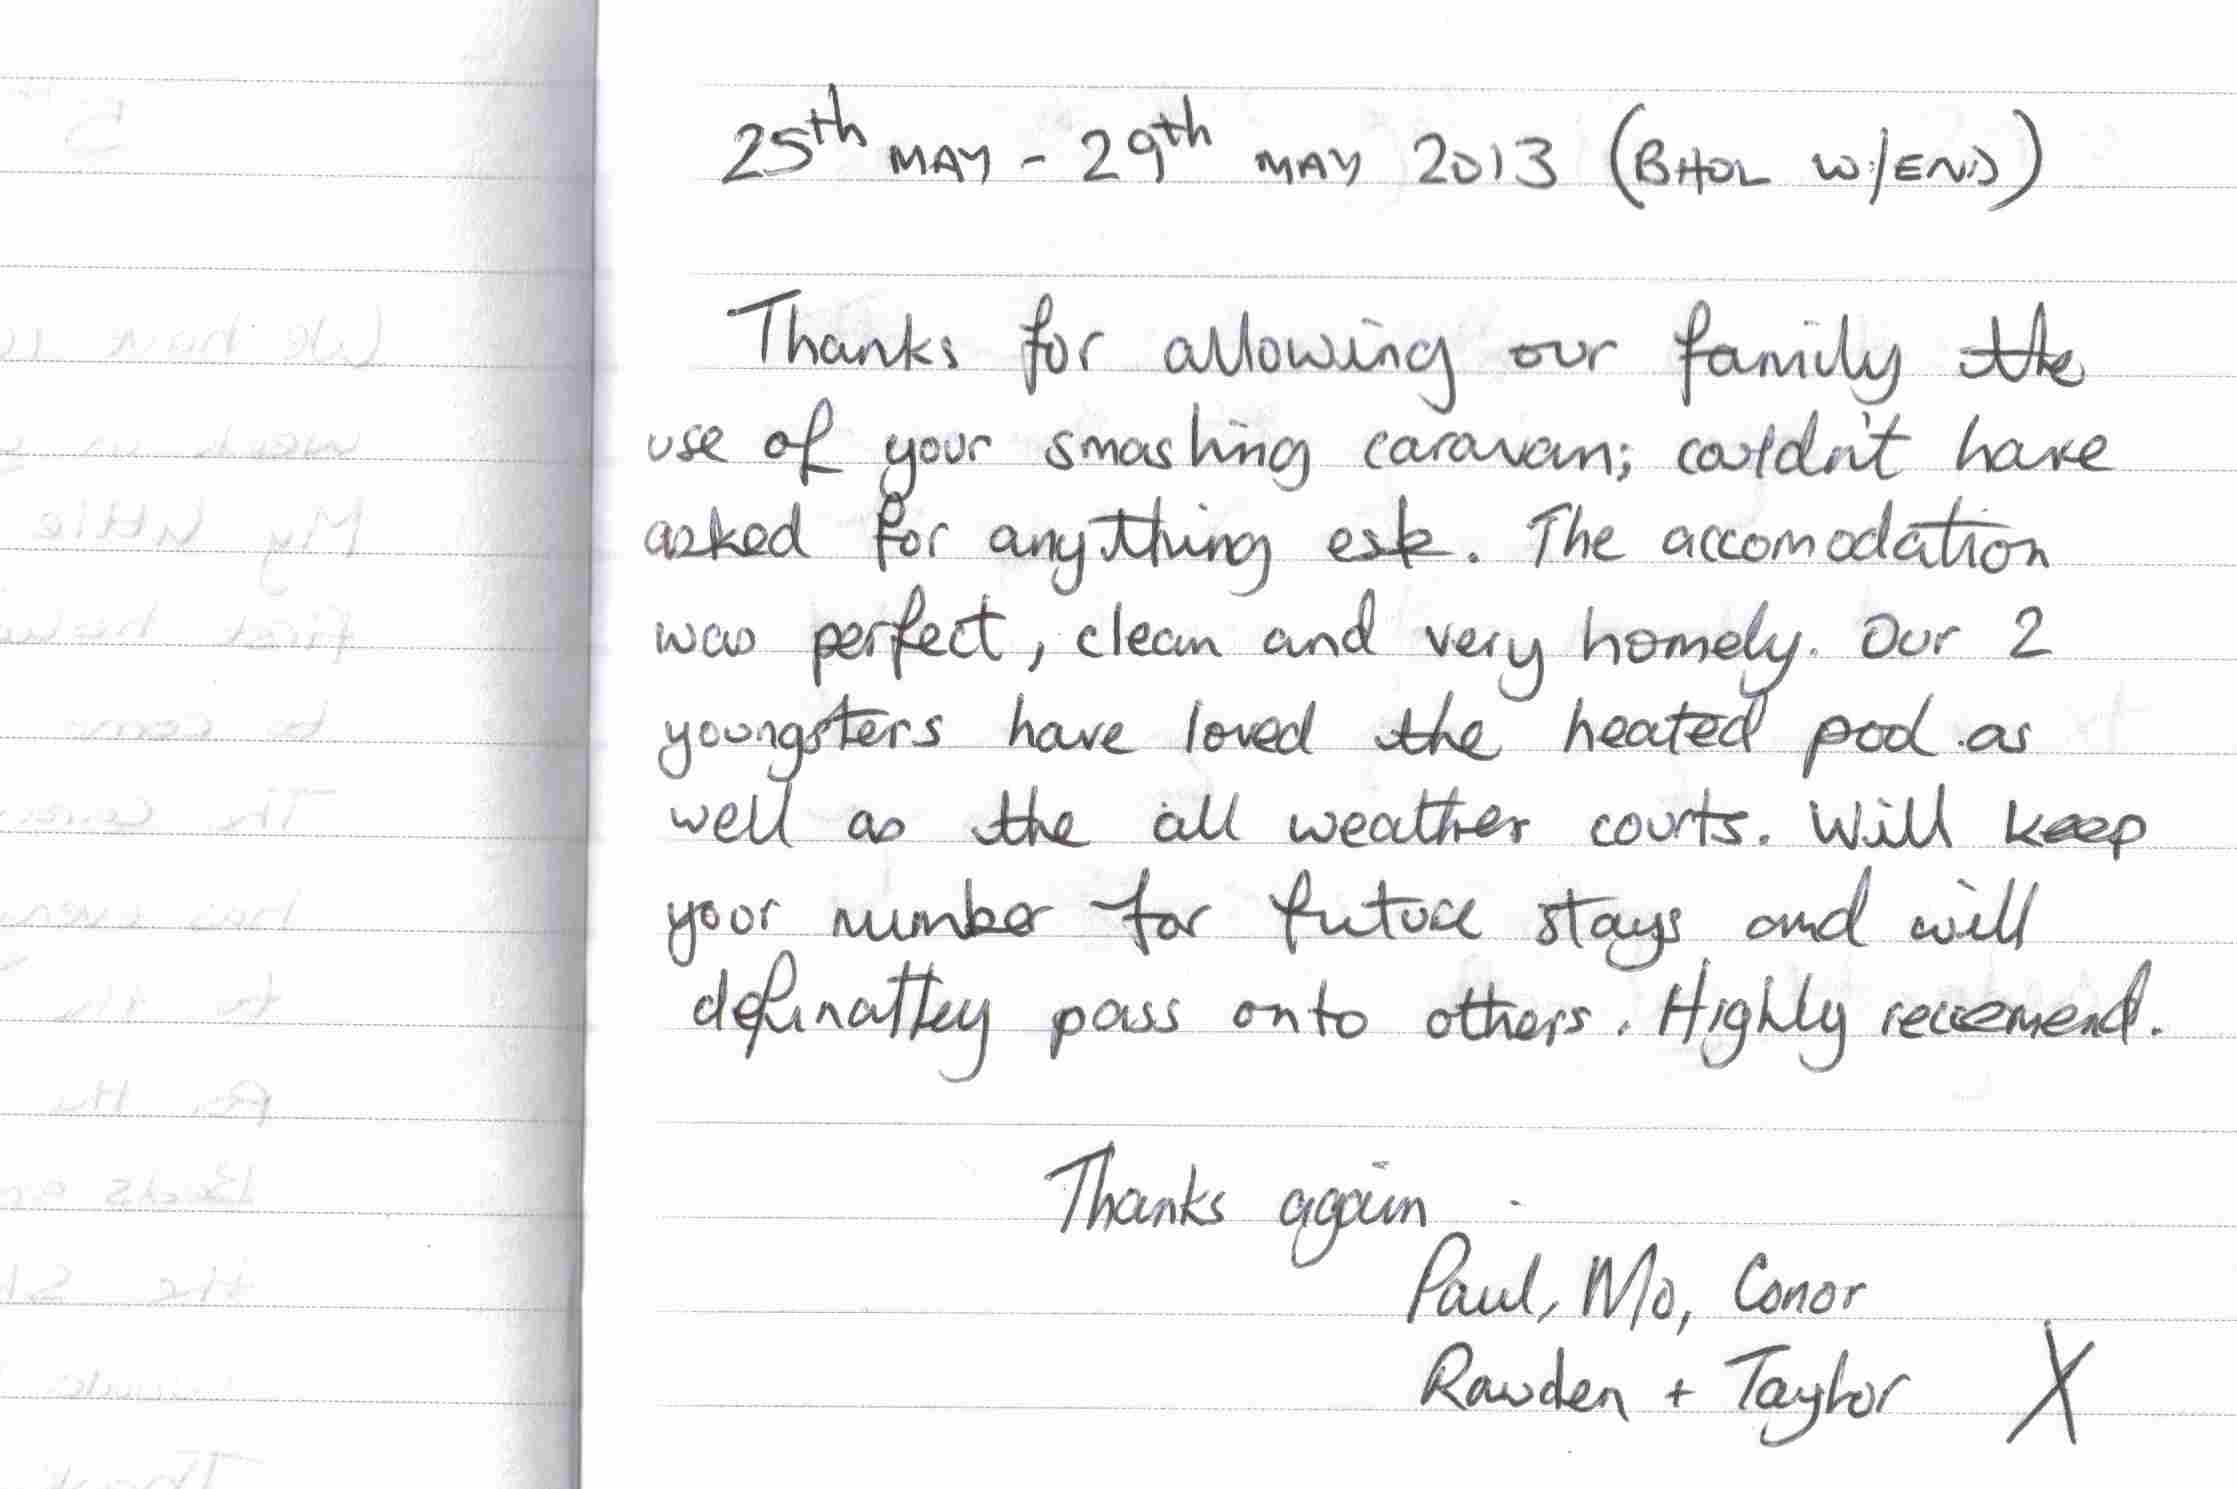 25th MAY - 29th MAY 2013 (BHOL W/END)
Thanks for allowing our family the
use of your smashing caravan; couldn't have
asked for anything esle. The accomodation
was perfect, clean and very homely. Our 2
youngsters have loved the heated pool as
well as the all weather courts. Will keep
your number for future stays and will
definatley pass onto others. Highly reccemend.
Thanks again
Paul, Mo, Conor
Rawden + Taylor X